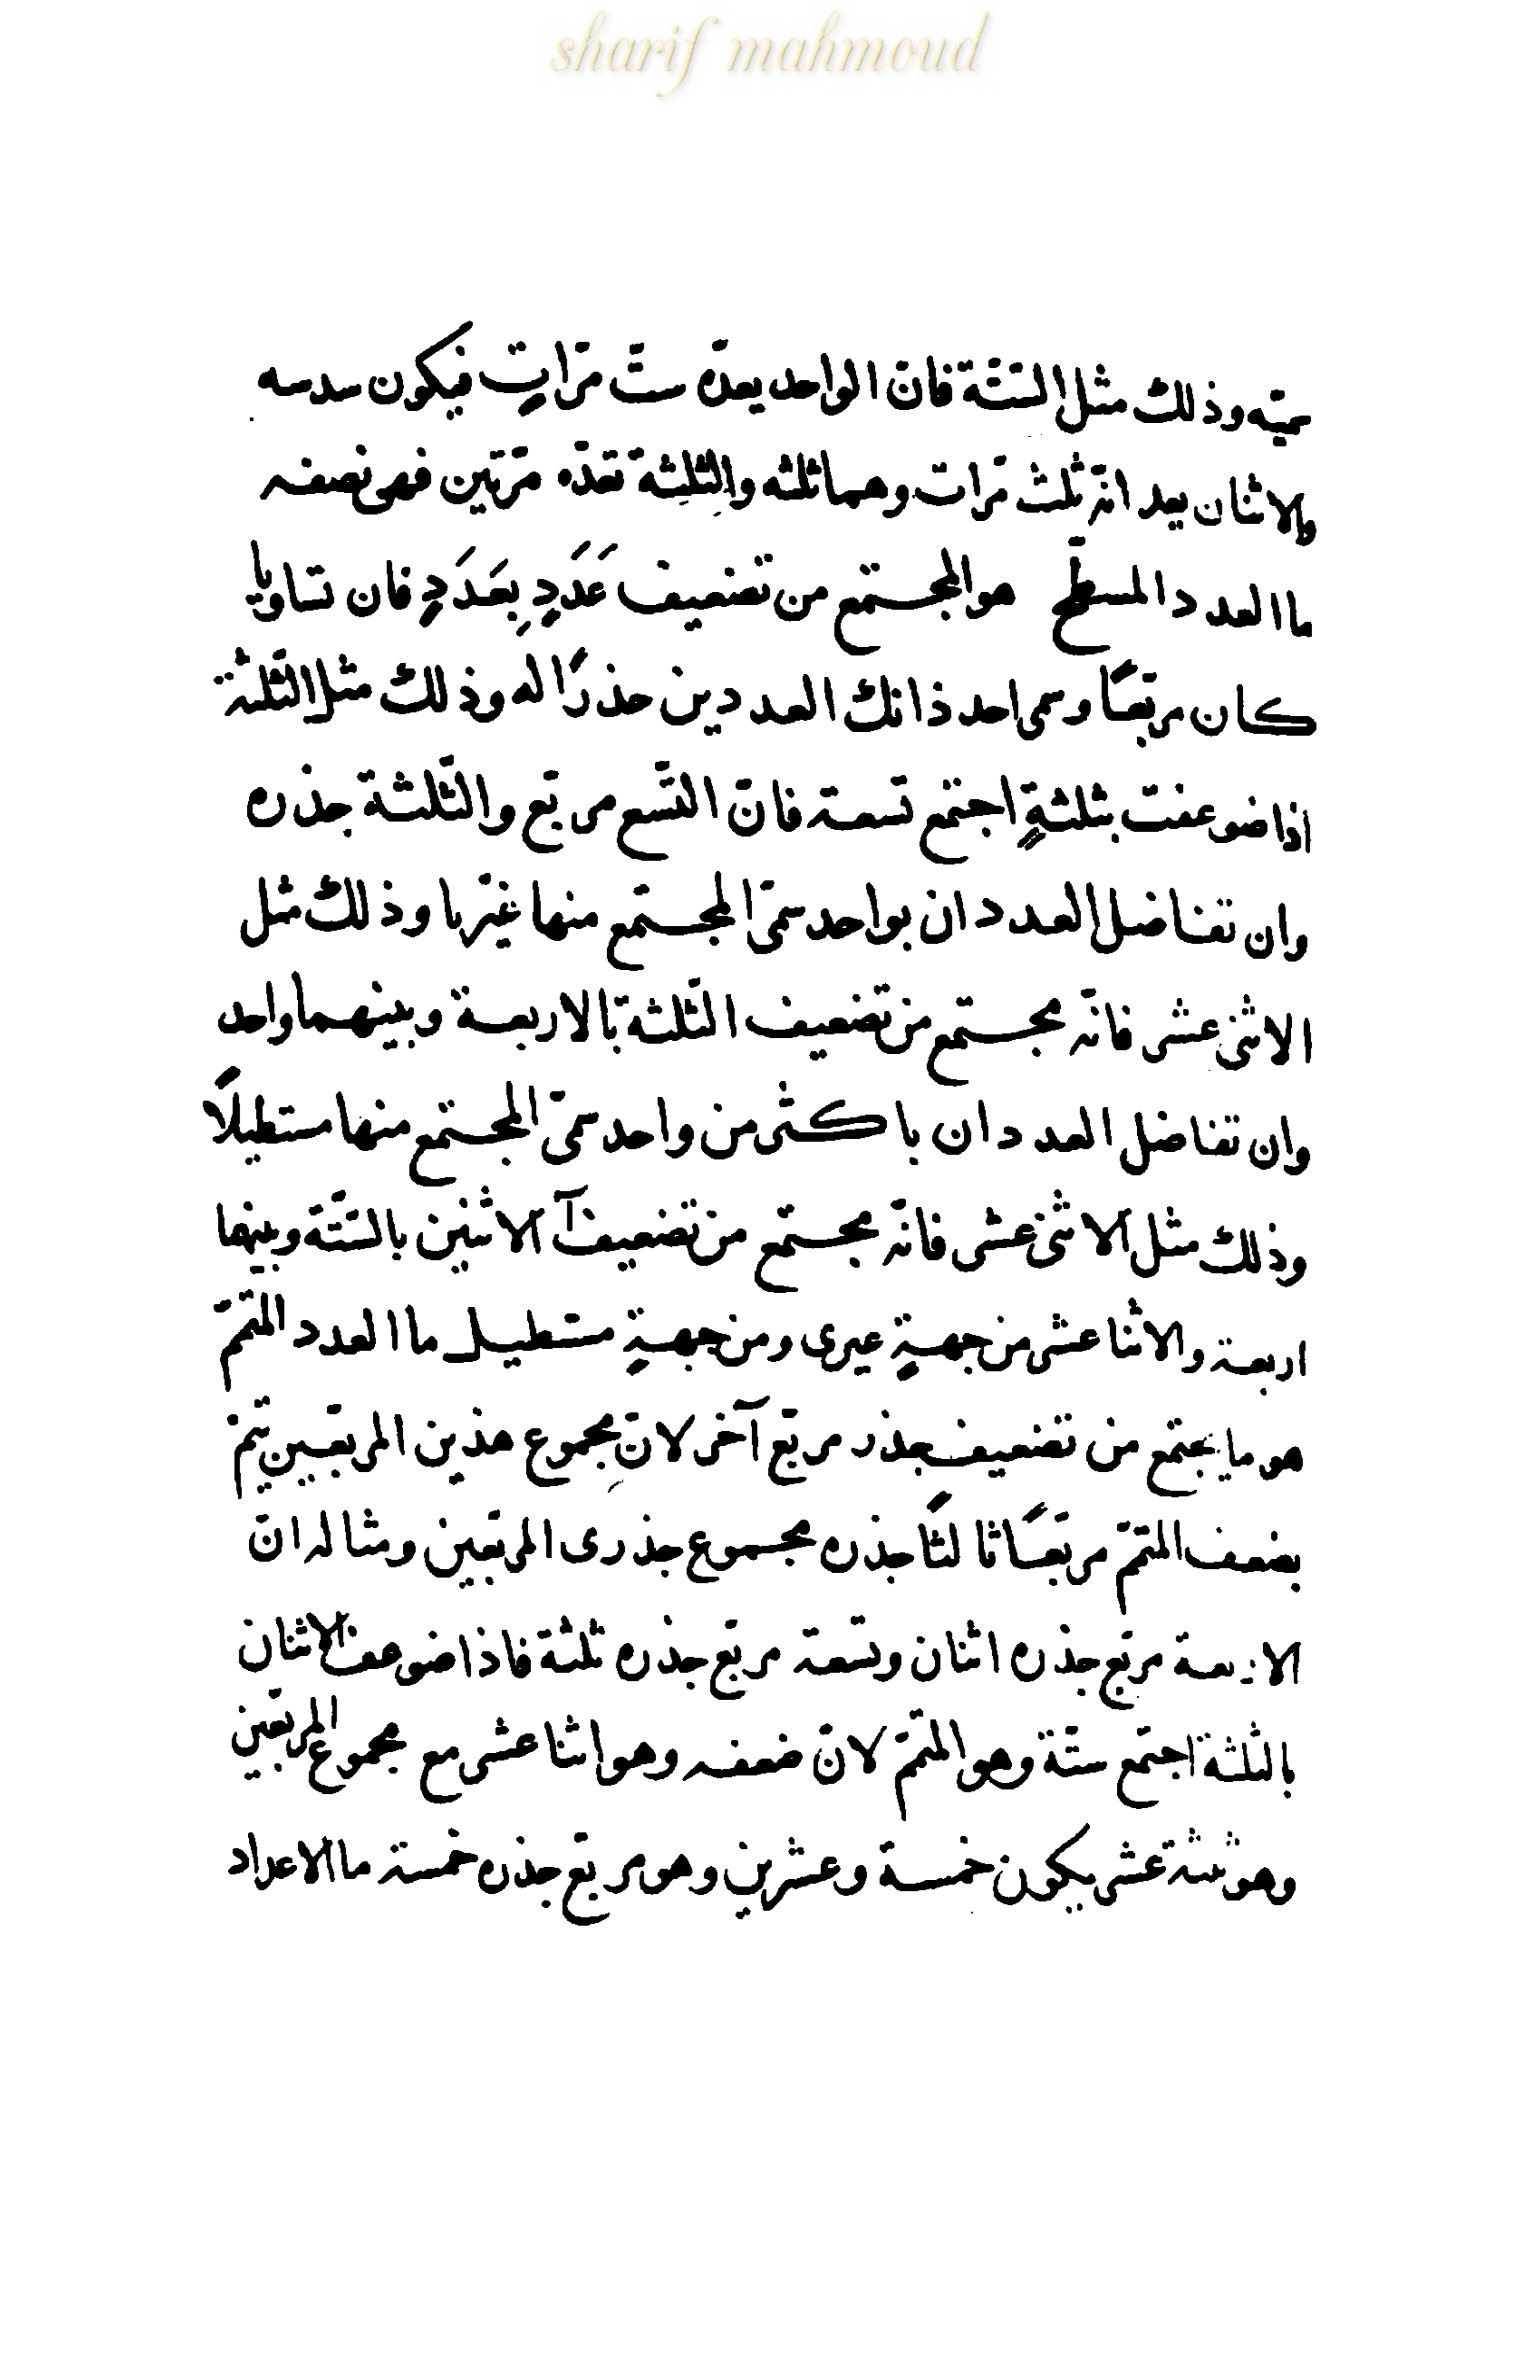 sharif mahmoud
سميّه وذلك مثل السّتّة فانّ الواحد يعدّه ستّ مرّاتٍ فيكون سدسه
والاثنان يعد انّه ثلث مرّات وهما ثلثه والثّلثة تعدّه مرّتين فهى نصفه
ما العدد المسطّح هو المجتمع من تضعيف عَدَدٍ بِعَدَدٍ فان تساويا
كان مربّعًا وسمى احد ذانك العددين جذرًا له وذلك مثل الثّلثة
اذا ضوعفت بثلثةٍ اجتمع تسعة فانّ التّسع مربّع والثّلثة جذره
وان تفاضل العددان بواحد سمّى المجتمع منها غيّريا وذلك مثل
الاثنى عشر فانّه مجتمع من تضعيف الثّلثة بالاربعة وبينهما واحد
وان تفاضل العددان باكثر من واحد سمّى المجتمع منها مستطيلًا
وذلك مثل الاثنى عشر فانّه مجتمع من تضعيف آ الاثنين بالسّتّة وبينها
اربعة والاثنا عشر من جهةٍ غيرى ومن جهةٍ مستطيل ما العدد المتمّم
هو ما يجتمع من تضعيف جذر مربّع آخر لانّ مجموع هذين المربّعين يتمّ
بضعف المتمّم مربّعًا ثالثًا جذره مجموع جذرى المربّعين ومثاله انّ
الاربعة مربّع جذره اثنان وتسعة مربّع جذره ثلثة فاذا ضوعف الاثنان
بالثلثة اجتمع ستّة وهو المتمّم لانّ ضعفه وهو اثنا عشر مع مجموع المربّعين
وهو ثلثة عشر يكون خمسة وعشرين وهو مربّع جذره خمسة ما الاعداد